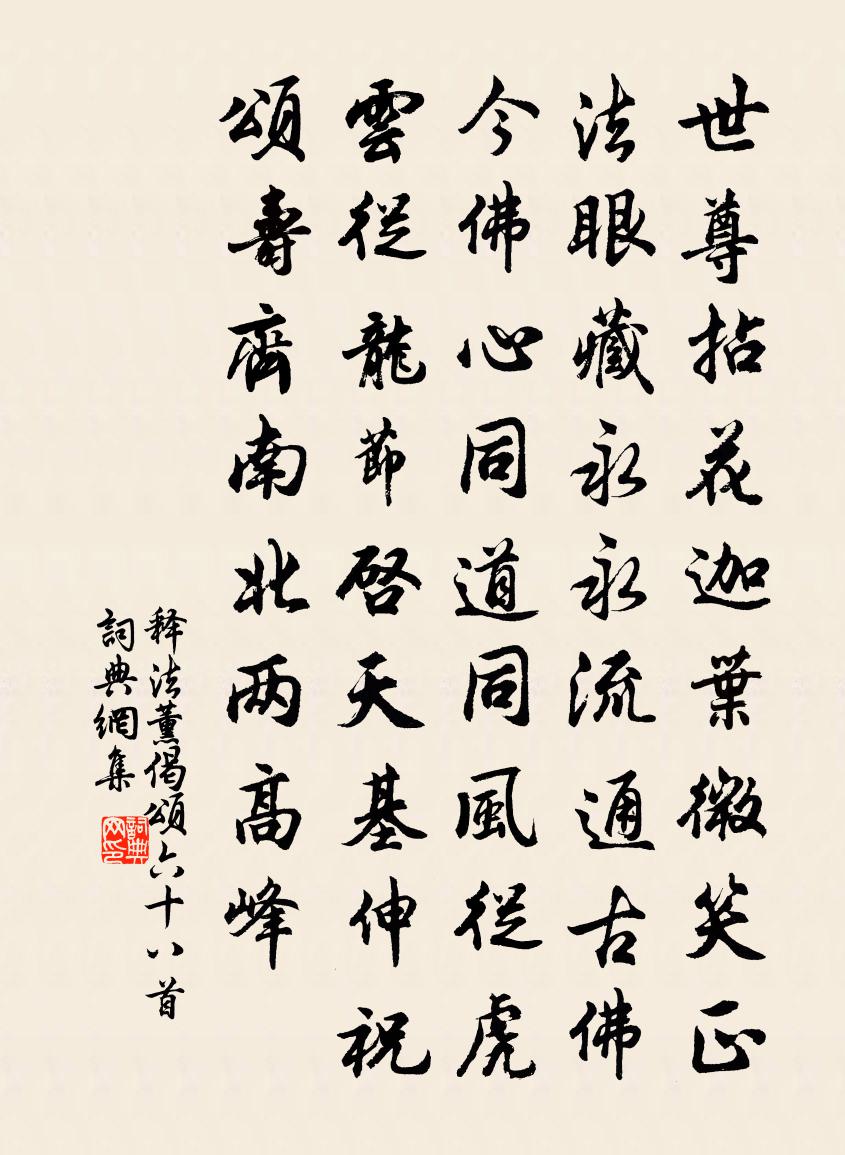 世尊拈花迦葉微笑正
法眼藏永永流通古佛
今佛心同道同風從虎
雲從龍節啓天基伸祝
頌壽齊南北两高峰
释法薰偈頌六十八首
詞典網集
詞典网印